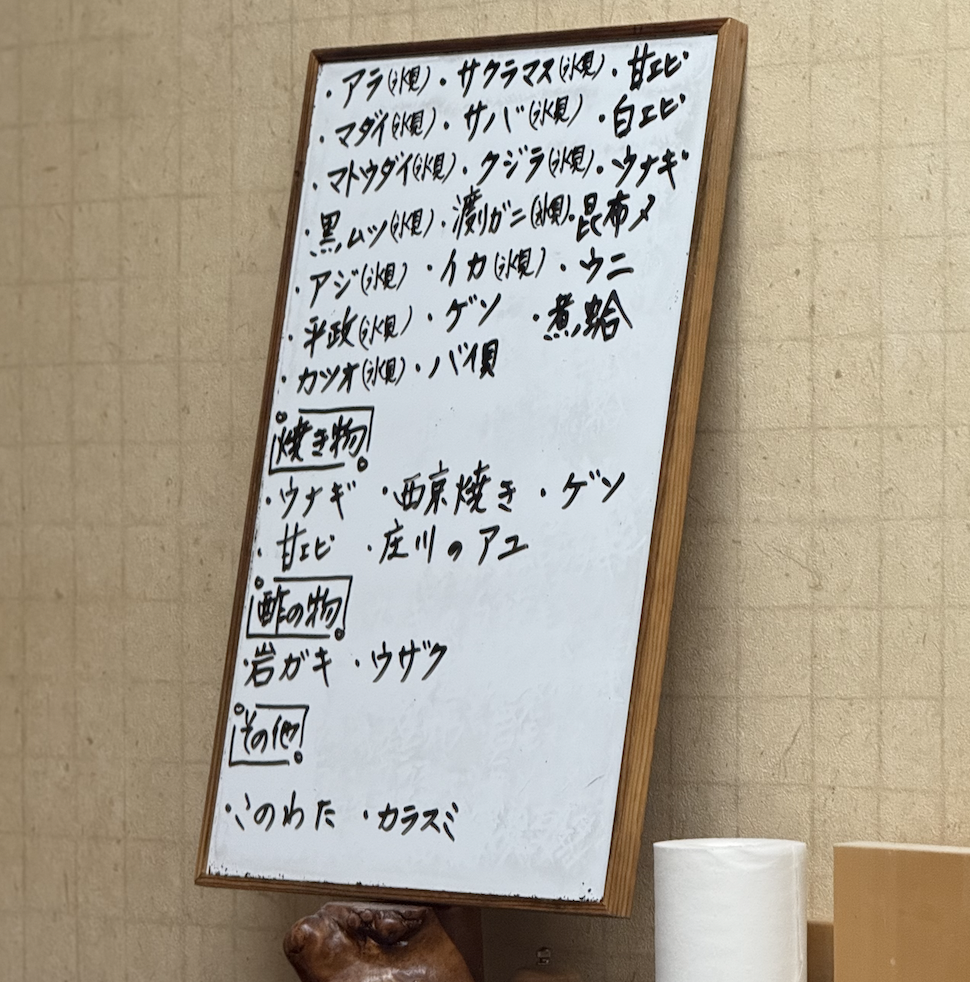 ・アラ(氷見)・サクラマス(氷見)・甘エビ
・マダイ(氷見)・サバ(氷見)・白エビ
・マトウダイ(氷見)・クジラ(氷見)・ウナギ
・黒ムツ(氷見)・渡リガニ(氷見)・昆布〆
・アジ(氷見)・イカ(氷見)・ウニ
・平政(氷見)・ゲソ・煮蛤
・カツオ(氷見)・バイ貝
焼き物
・ウナギ・西京焼き・ゲソ
・甘エビ・庄川のアユ
酢の物
・岩ガキ・ウザク
その他
・このわた・カラスミ